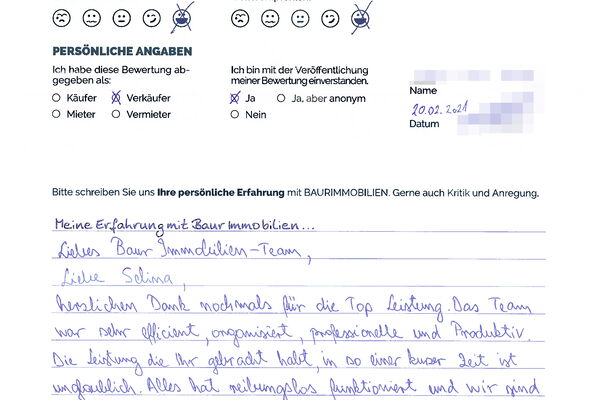 PERSÖNLICHE ANGABEN
Ich habe diese Bewertung ab-
gegeben als:
Käufer Verkäufer
Mieter Vermieter
Ich bin mit der Veröffentlichung
meiner Bewertung einverstanden.
Ja Ja, aber anonym
Nein
Name
20.02.2021
Datum
Bitte schreiben Sie uns Ihre persönliche Erfahrung mit BAURIMMOBILIEN. Gerne auch Kritik und Anregung.
Meine Erfahrung mit Baur Immobilien...
Liebes Baur Immobilien-Team,
Liebe Selina,
herzlichen Dank nochmals für die Top Leistung. Das Team
war sehr efficient, organisiert, professionelle und Produktiv.
Die Leistung die Ihr gebracht habt, in so einer kurzer Zeit ist
unglaublich. Alles hat reibungslos funktioniert und wir sind